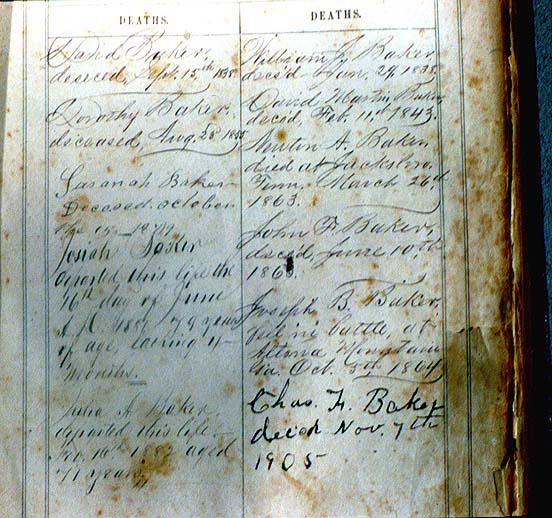 DEATHS.
David Baker,
dececed, Sept. 15th 1838.
Dorothy Baker,
deceased, Aug. 28 1835
Sarah Baker
Deceased october
the 15
Josiah Baker
departed this life the
16th day of June
A.D. 1887 79 years
of age, lacking 4
months.
Julia A. Baker
departed this life
Nov. 16th 1887 aged
71 years
DEATHS.
William J. Baker,
dec'd Jan. 29, 1835.
David Martin Baker,
deced, Feb. 11th 1843.
Newton A. Baker
died at Jacksboro.
Tenn. March 26th
1863.
John F. Baker,
dec'd, June 10th
1863.
Joseph B. Baker,
fel in battle, at
Altona Mountain
Ga. Oct. 5th 1864
Chas. F. Baker
deced Nov. 7th
1905